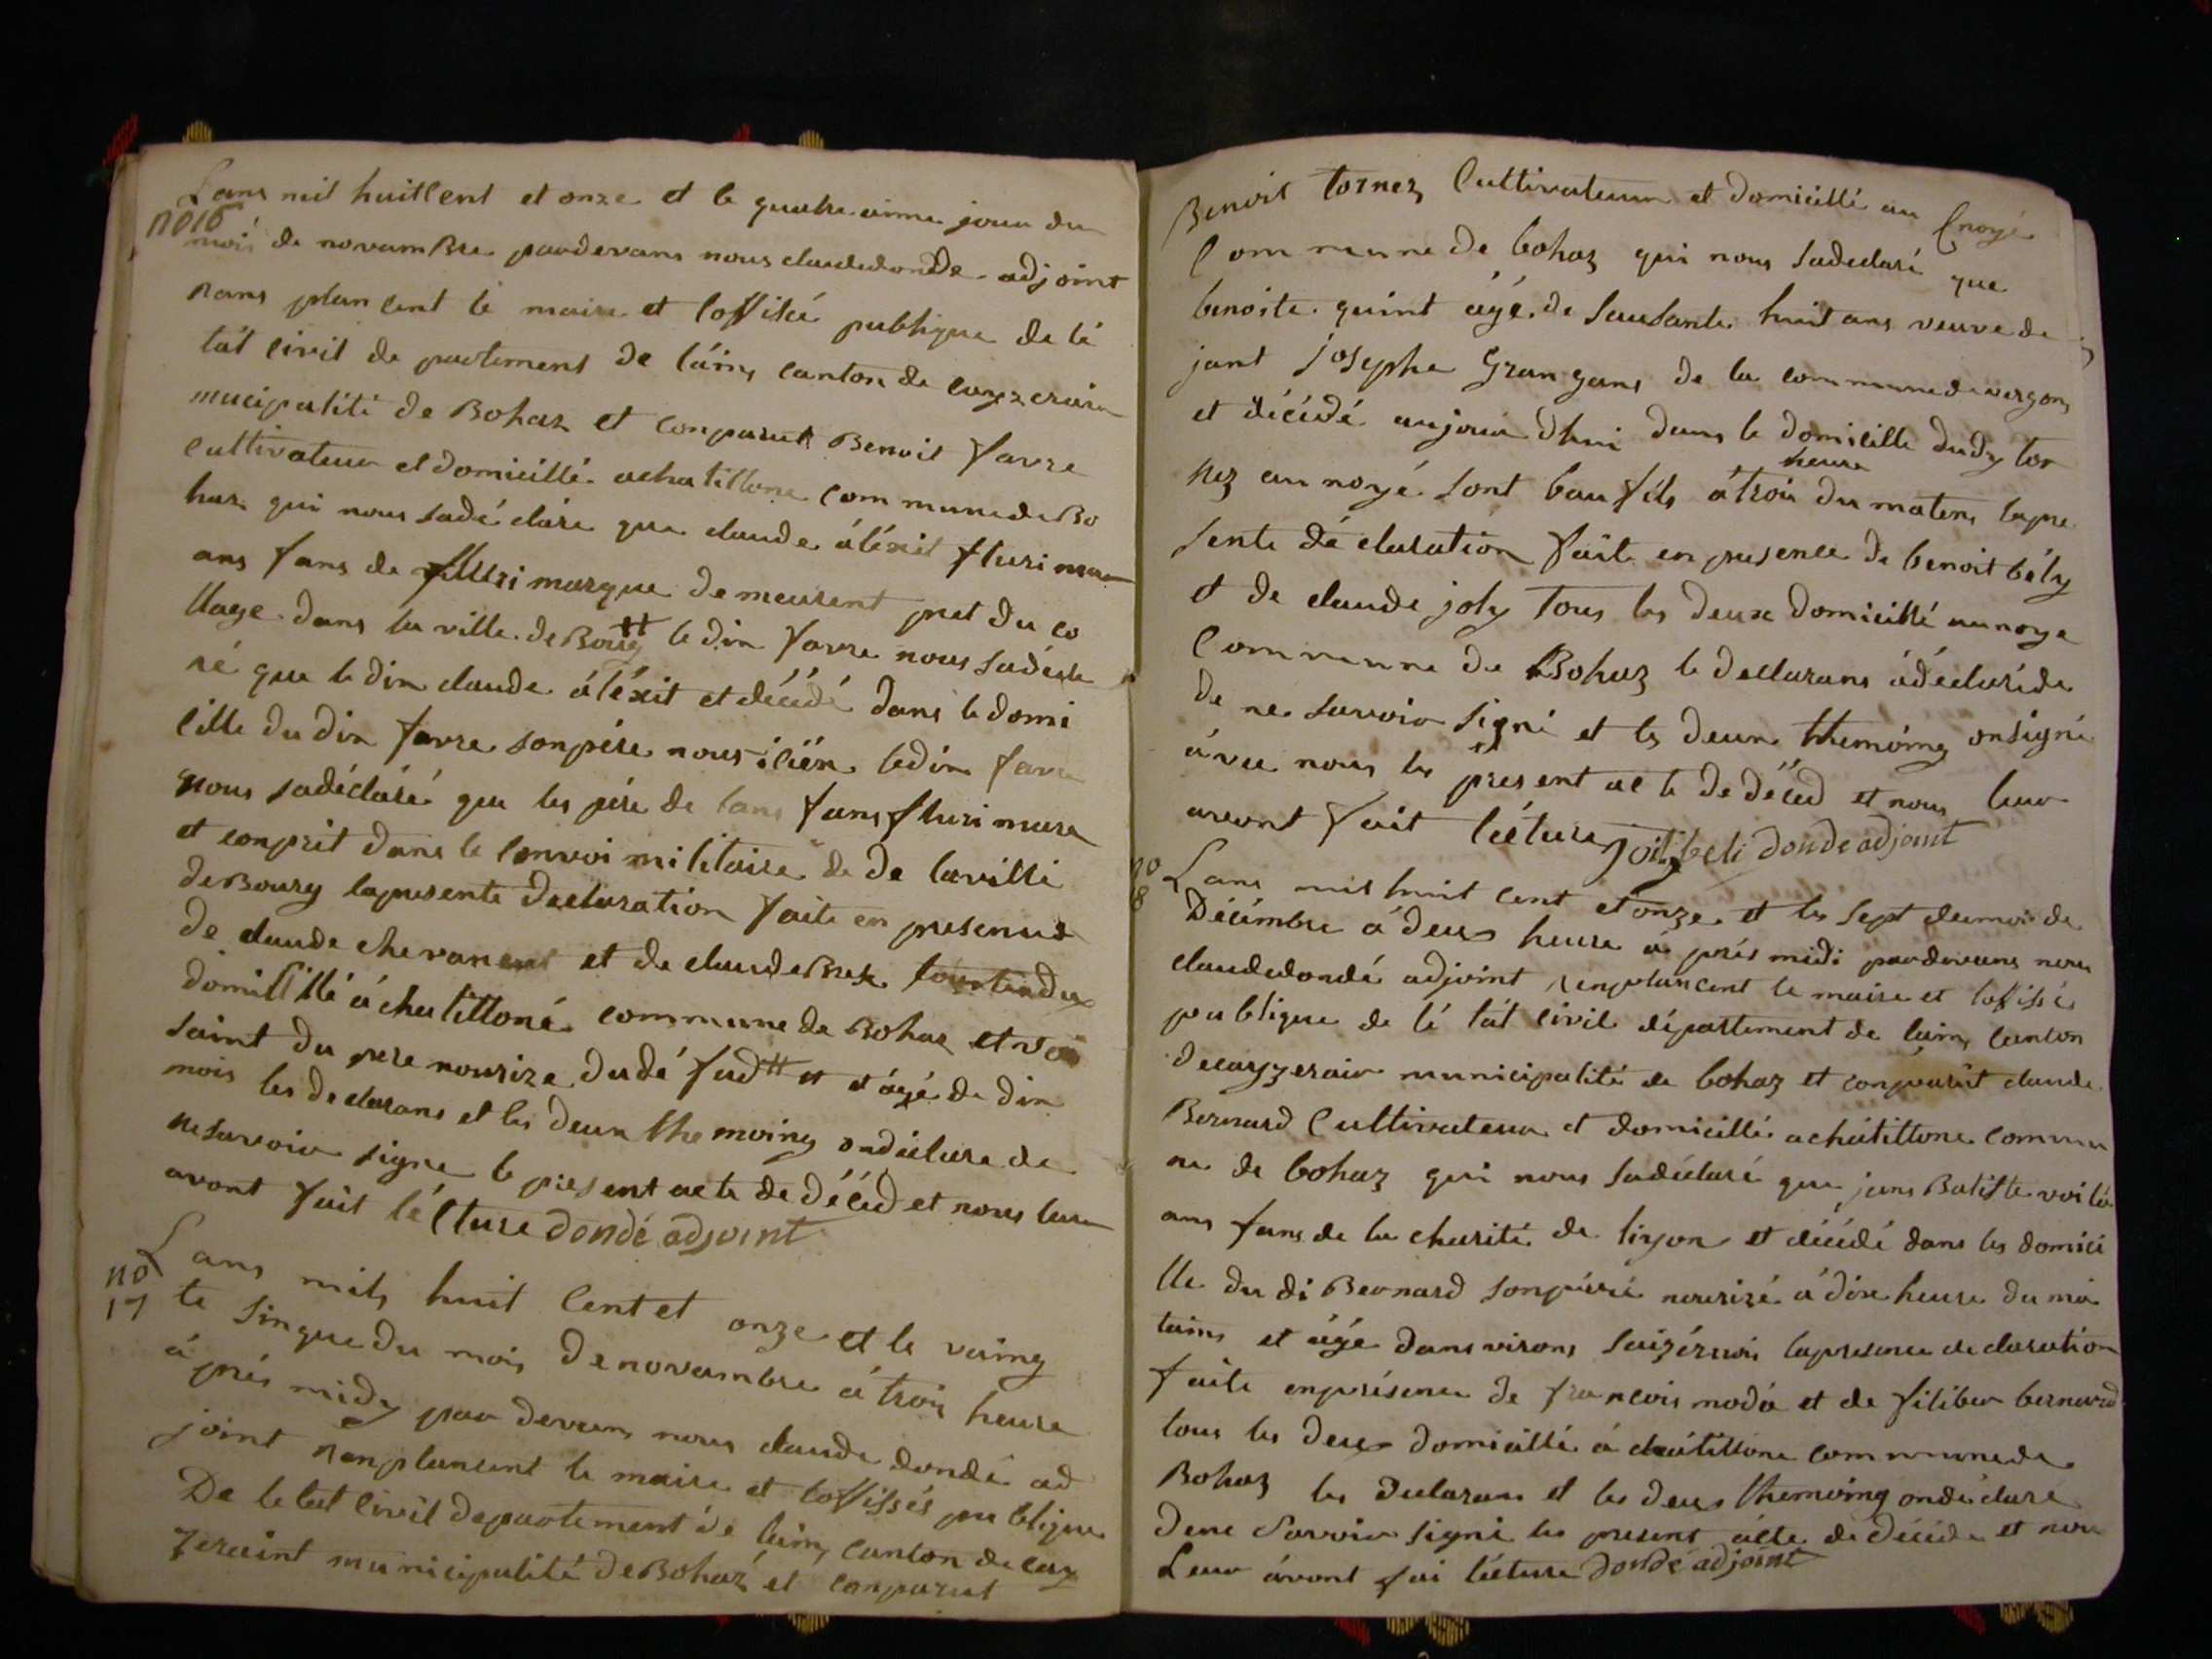 Lans mil huit Cent et onze et le quatre aime jour du
no 16
mois de novambre pardevans nous claude dondé adjoint
rans plan cent le maire et loffisié publique de lé
tát civil de partement de láin, canton de ceyzerair
mucipalité de Bohaz et conparut Benoit favre
Cultivateur et domicillé achatillone commune de Bo
haz qui nous sadé clare que claude áléxit fluri mar
ans fans de fluri marque demeurent pret du co
llage dans la ville de Bourg le dix favre nous sadécla
ré que le dix claude áléxit et décédé dans le domi
cille du dix favre son pére nouricién le dix favre
nous sadéclaré que les pére de lans fans fluri mare
et conprit dans le convoi militaire de de laville
de Bourg lapresente declaration faite en presence
de claude chevanent et de claude Brek tous les deux
domicillé á chatilloné commune de Bohaz et
saint du pere nourize du dé fud et ágé de dix
mois les declarans et les deux themoing on déclare de
ne savoir signe le present acte de décéd et nous leur
avont fait lécture dondé adjoint
no 17
Lans mils huit Cent et onze et le vaing
te sinque du mois de novambre á trois heure
á prés midy par devans nous claude dondé ad
joint ranplancent le maire et loffissés publique
De letat civil departement de lain, canton de cey
zeraint municipalité de Bohaz et conparut
Benoit tornez Cultivateur et domicillé au noyé
Commune de bohaz qui nous sadeclaré que
benoite quint ágé de sausante huit ans veuve de
jant josephe Grangans de la commune devergons
et décédé aujour dhui dans le domicille dudy tor
nez au noyé sont baufils á troi heure du matens lapre
sente déclaration faite en presence de benoit bély
et de claude joly tous les deux domicillé au noye
Commune de Bohaz le declarans á déclaré de
de ne savoir signé et les deux themoing on signé
ávec nous les present acte de décéd et nous leur
avont fait lécture Joly beli dondé adjoint
no 18
Lans mil huit cent et onze et les sept du mois de
Décémbre á deux heure á prés midi pardevans nous
claude dondé adjoint renplancent le maire et loffissé
publique de lé tát civil département de lain, canton
de ceyzerair municipalité de bohaz et conparut claude
Bernard Cultivateur et domicillé a chátillone commu
ne de bohaz qui nous sadéclaré que jans Batiste voilá
ans fans de la charité de liyon et décédé dans les domici
lle du di Bernard son péré nourizé á dix heure du ma
tains et ágé dans virons saizémois lapresence declaration
faite en présence de francois modá et de filiber bernard
tous les deux domicillé á chátillone commune de
Bohaz les declarans et les deux themoing on déclare
de ne savoir signé les present ácte de décéde et nou
Leur ávont fai lécture dondé adjoint